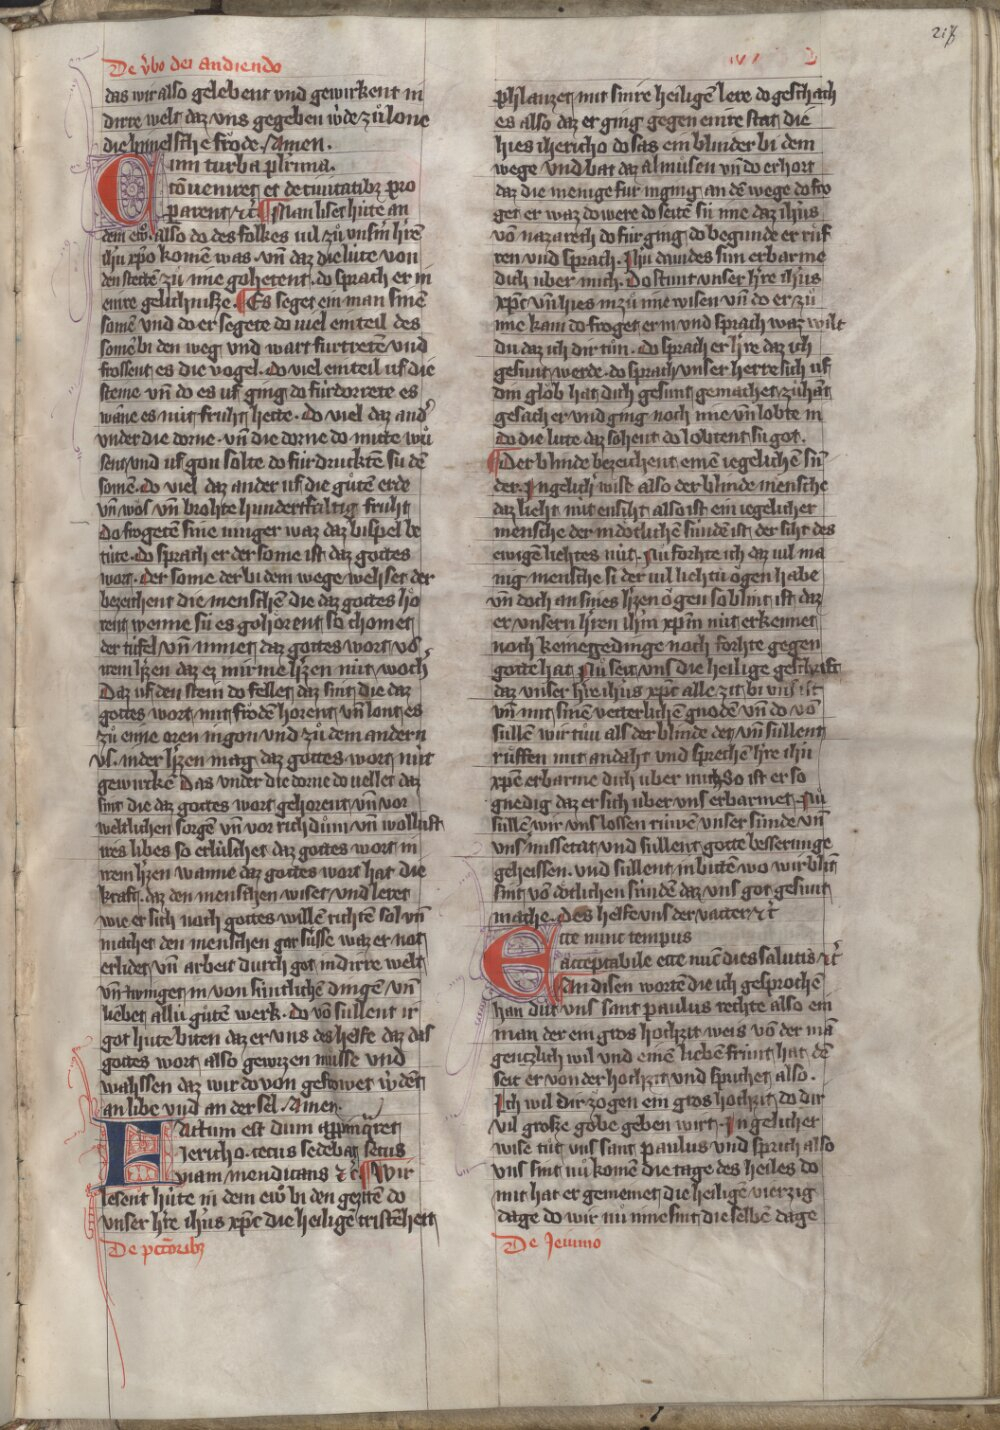 217
De v̄bo dei audiendo
das wir also gelebent vnd gewirkent in
dirre welt daz vns gegeben w̄de zů lone
die himelsche fröde. Amen.
Cum turba plurima
cōuenirēt et de ciuitatibꝫ pro
parent ⁊c̄ Man liset hute an
dem ewͦ. also do des folkes uil zů vnsm̄ hr̄en
ihū xp̄o komē was. vn̄ daz die lute von
den stettē zů ime gohetent. do sprach er in
einre gelichnisze. Es seget ein man sinē
somē vnd do er segete do viel ein teil des
somē bi den weg vnd wart furtretē vnd
frossent es die vogel. do viel ein teil uf die
steine vn̄ do es uf ging do fürdorrete es
wāne es nüt fruht hette. do viel daz and̾
vnder die dorne. vn̄ die dorne do mitte wů
sent vnd uf gon solte do fürdrucktē sü dē
somē. do viel daz ander uf die gůten erde
vn̄ wůs vn̄ brohte hundertfaltig fruht
do frogetē sine iunger waz daz bispel be
tute. do sprach er der some ist daz gottes
wort. der some der bi dem wege wehset der
bezeichent die menschē die daz gottes hö
rent wenne sü es gohörent so chomet
der tüfel vn̄ nimet daz gottes wort vō
irem h̾zen daz ez in irme h̾zen nüt woch̾
Daz uf den stein do fellet daz sint die daz
gottes wort mit frödē horent vn̄ lont es
zů eime oren in gon vnd zů dem andern
vs. in der h̾zen mag daz gottes wort nüt
gewurckē Das vnder die dorne do vellet daz
sint die daz gottes wort gehorent vn̄ vor
weltlichen sorgē vn̄ vor richdům vn̄ wollust
tes libes so erlüschet daz gottes wort in
irem h̾zen wanne daz gottes wort hat die
kraft. daz den menschen wiset vnd leret
wie er sich noch gottes willē richtē sol vn̄
machet den menschen gar süsse waz er not
erlidet vn̄ arbeit durch got in dirre welt
vn̄ twinget in von süntlichen dingē vn̄
liebet allü gůten werk. do vō süllent ir
got hute biten daz er vns des helfe daz das
gottes wort also gewizen müsse vnd
wahssen daz wir do von gefrowet w̾dēt
an libe vnd an der sel. Amen.
Factum est dum appinq̄ret
Jericho. cecus sedebat secus
viam mendicans ⁊c̄ Wir
lesent hüte in dem ewͦ bi den gezitē do
vnser h̾re ih̄us xp̄c die heiligē cristēheit
De pctōribꝫ
phlanzet mit sinre heiligē lere do geschach
es also daz er ging gegen einre stat die
hies iherico do sas ein blinder bi dem
wege vnd bat daz almůsen vn̄ do erhort
daz die menige für in ging an dē wege do fro
get er waz do were do seitē sü ime daz ih̄us
vō nazarech do für ging do begunde er rüf
fen vnd sprach. Jhū dauides sun erbarme
dich uber mich. Do stunt vnser h̾re ih̄us
xp̄c vn̄ hies in zů ime wisen vn̄ do er zů
ime kam do froget er in vnd sprach waz wilt
du daz ich dir tůn. do sprach er h̾re daz ich
gesunt werde. do sprach vnser herre sich uf
din glöb hat dich gesunt gemachet. zůhāt
gesach er vnd ging noch ime vn̄ lobte in
do die lute daz sohent do lobtent sü got.
Der blinde bezeichent einē iegelichē sun
der. Jn gelich̾ wise also der blinde mensche
daz lieht nüt ensiht also ist ein iegelicher
mensche der in dötlichen sündē ist der siht des
ewigē liehtes nüt. Nu forhte ich daz uil ma
nig mensche si der uil liehtü ögen habe
vn̄ doch an sines h̾zen ögen so blint ist daz
er vnsern h̾ren ih̄m xp̄m nüt erkennet
noch kein gedinge noch forhte gegen
gotte hat Nu seit vns die heilige geschrift
daz vnser h̾re ih̄us xp̄c alle zit bi vns ist
vn̄ mit sinē vetterlichē gnodē vn̄ do vō
süllē wir tůn als der blinde det vn̄ süllent
růffen mit andaht vnd sprechē h̾re ihū
xp̄e erbarme dich uber mich So ist er so
gnedig daz er sich uber vns erbarmet. Nu
süllē wir vns lossen rüwē vnser sünde vn̄
vns̾ missetat vnd süllent gotte besserunge
geheissen. vnd süllent in bittē wo wir blint
sint vō dötlichen sündē daz vns got gesunt
mache. Des helfe vns der vatter ⁊c̄
Ecce nunc tempus
acceptabile ecce nūc dies salutis ⁊c̄
An disen wortē die ich gesprochē
han düt vns sant paulus rechte also ein
man der ein gros hochzit weis vō der mā
gentzlich wil vnd einē liebē frünt hat dē
seit er von der hochzit vnd sprichet also.
Jch wil dir zögen ein gros hochzit do dir
vil groske göbe geben wirt. Jn gelicher
wise tůt vns sant paulus vnd sprich also
vns sint nů komē die tage des heiles do
mit hat er gemeinet die heiligē vierzig
dage do wir nů inne sint die selbē dage
De Jeiunio